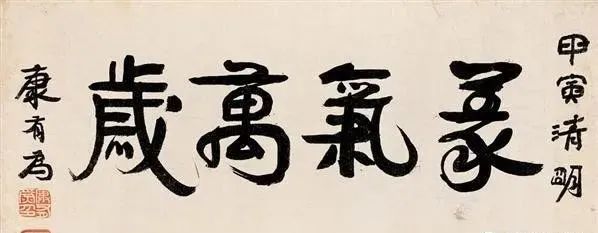 甲寅清明
義氣萬歲
康有為